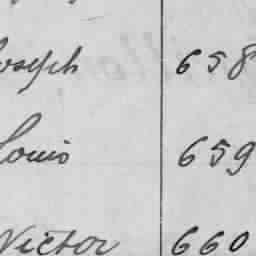 Joseph 658
Louis 659
Victor 660